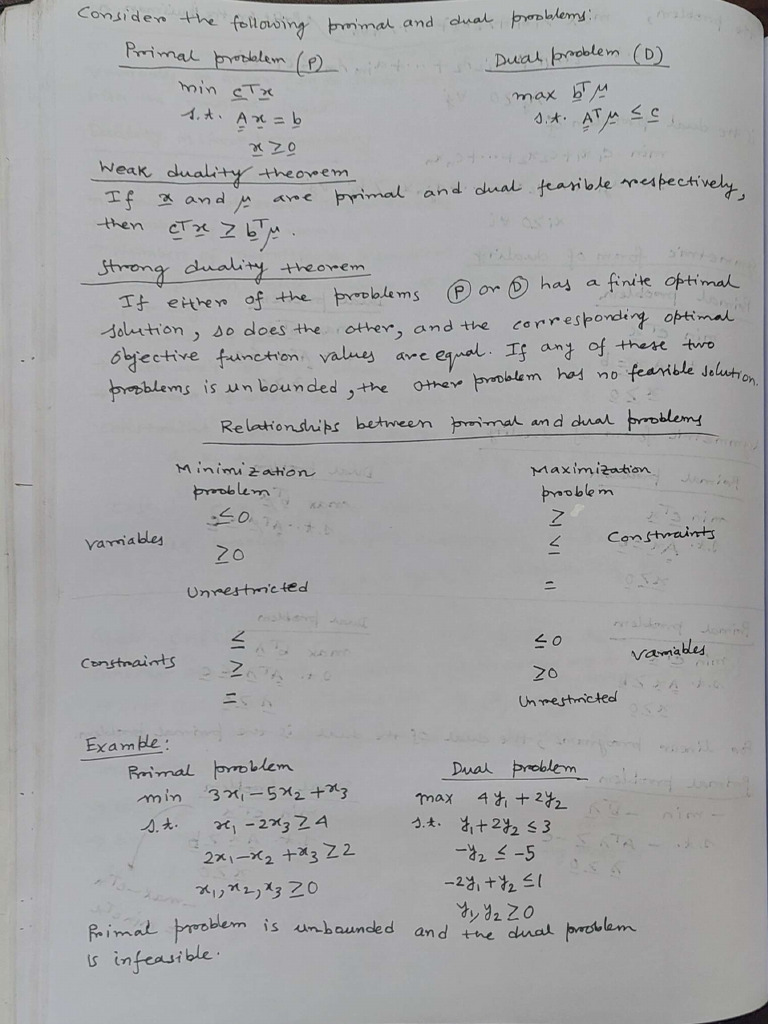 Consider the following primal and dual problems:
Primal problem (P)    Dual problem (D)
min cᵀx    max bᵀμ
s.t. Ax = b    s.t. Aᵀμ ≤ c
x ≥ 0
Weak duality theorem
If x and μ are primal and dual feasible respectively,
then cᵀx ≥ bᵀμ.
Strong duality theorem
If either of the problems Ⓟ or Ⓓ has a finite optimal
solution, so does the other, and the corresponding optimal
objective function values are equal. If any of these two
problems is unbounded, the other problem has no feasible solution.
Relationships between primal and dual problems
Minimization    Maximization
problem    problem
≤0    ≥
Variables    ≥0    ≤    Constraints
Unrestricted    =
≤    ≤0
Constraints    ≥    ≥0    Variables
=    Unrestricted
Example:
Primal problem    Dual problem
min 3x₁-5x₂+x₃    max 4y₁+2y₂
s.t. x₁-2x₃≥4    s.t. y₁+2y₂≤3
2x₁-x₂+x₃≥2    -y₂≤-5
x₁,x₂,x₃≥0    -2y₁+y₂≤1
y₁,y₂≥0
Primal problem is unbounded and the dual problem
is infeasible.